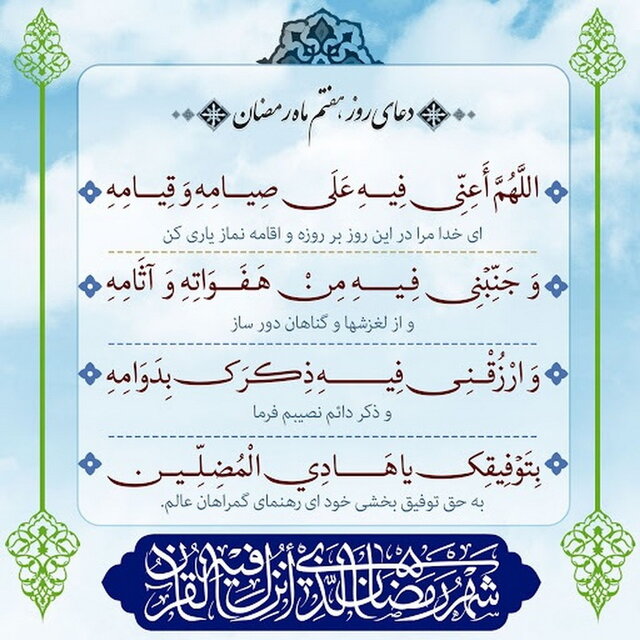 دعای روز هفتم ماه رمضان
اللَّهُمَّ أَعِنِّي فِيهِ عَلَى صِيَامِهِ وَ قِيَامِهِ
ای خدا مرا در این روز بر روزه و اقامه نماز یاری کن
وَ جَنِّبْنِي فِيهِ مِنْ هَفَوَاتِهِ وَ آثَامِهِ
و از لغزشها و گناهان دور ساز
وَ ارْزُقْنِي فِيهِ ذِكْرَكَ بِدَوَامِهِ
و ذکر دائم نصیبم فرما
بِتَوْفِيقِكَ يا هَادِيَ الْمُضِلِّينَ
به حق توفیق بخشی خود ای رهنمای گمراهان عالم.
شَهْرُ رَمَضَانَ الَّذِي أُنْزِلَ فِيهِ الْقُرْآنُ